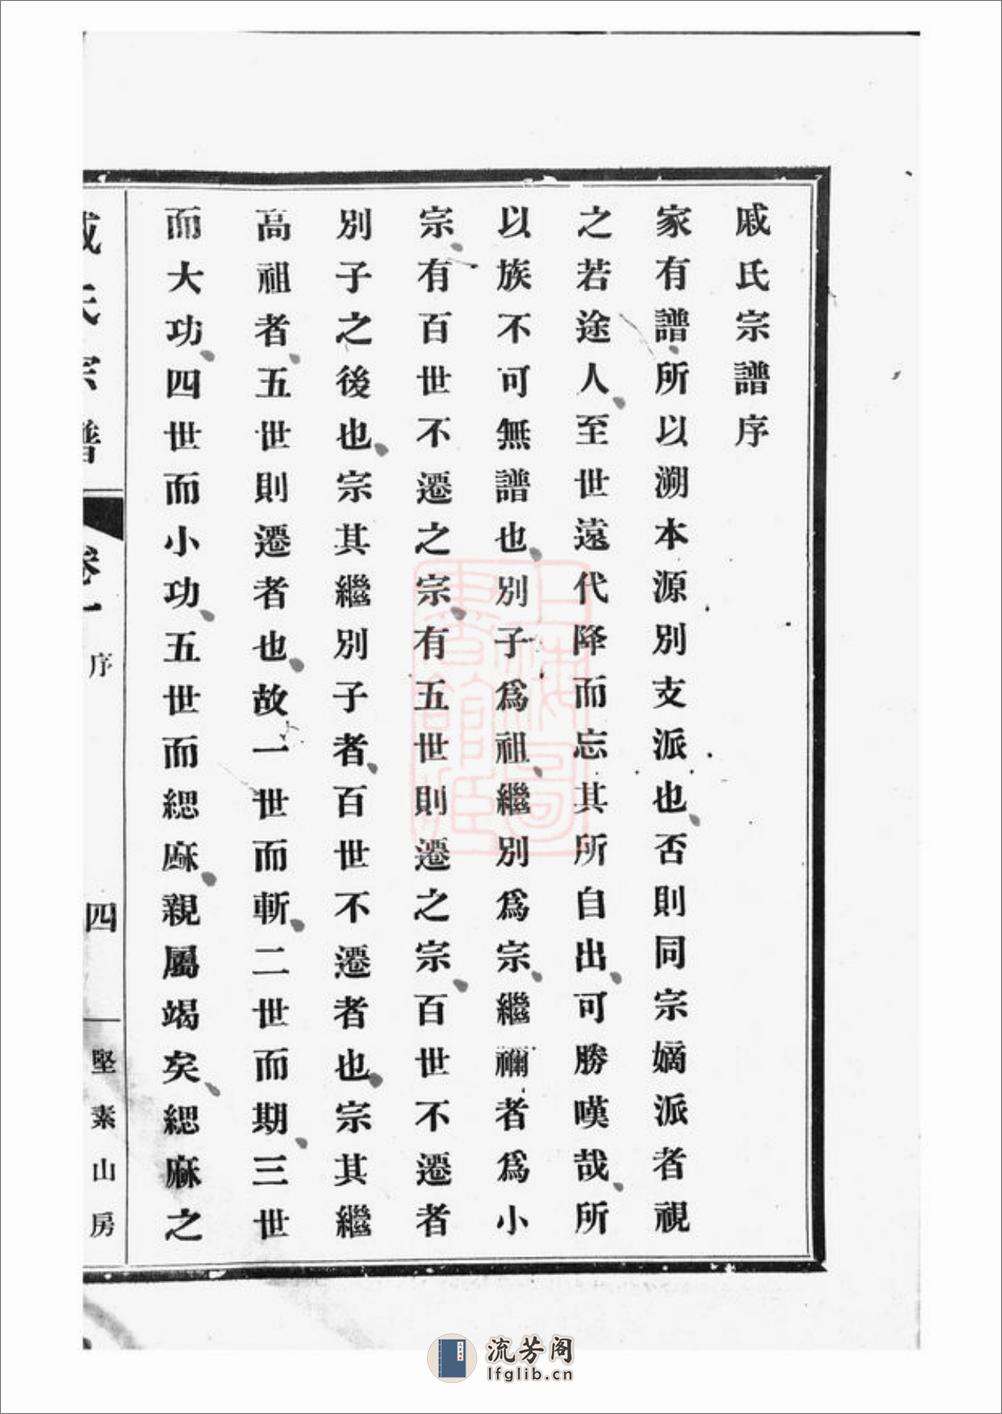 戚氏宗譜序
家有譜所以溯本源別支派也否則同宗嫡派者視
之若途人至世遠代降而忘其所自出可勝嘆哉所
以族不可無譜也別子爲祖繼別爲宗繼禰者爲小
宗有百世不遷之宗有五世則遷之宗百世不遷者
別子之後也宗其繼別子者百世不遷者也宗其繼
高祖者五世則遷者也故一世而斬二世而期三世
而大功四世而小功五世而緦麻親屬竭矣緦麻之
戚氏宗譜 卷一 序 四 堅素山房
上海圖書館藏
流芳阁
lfglib.cn